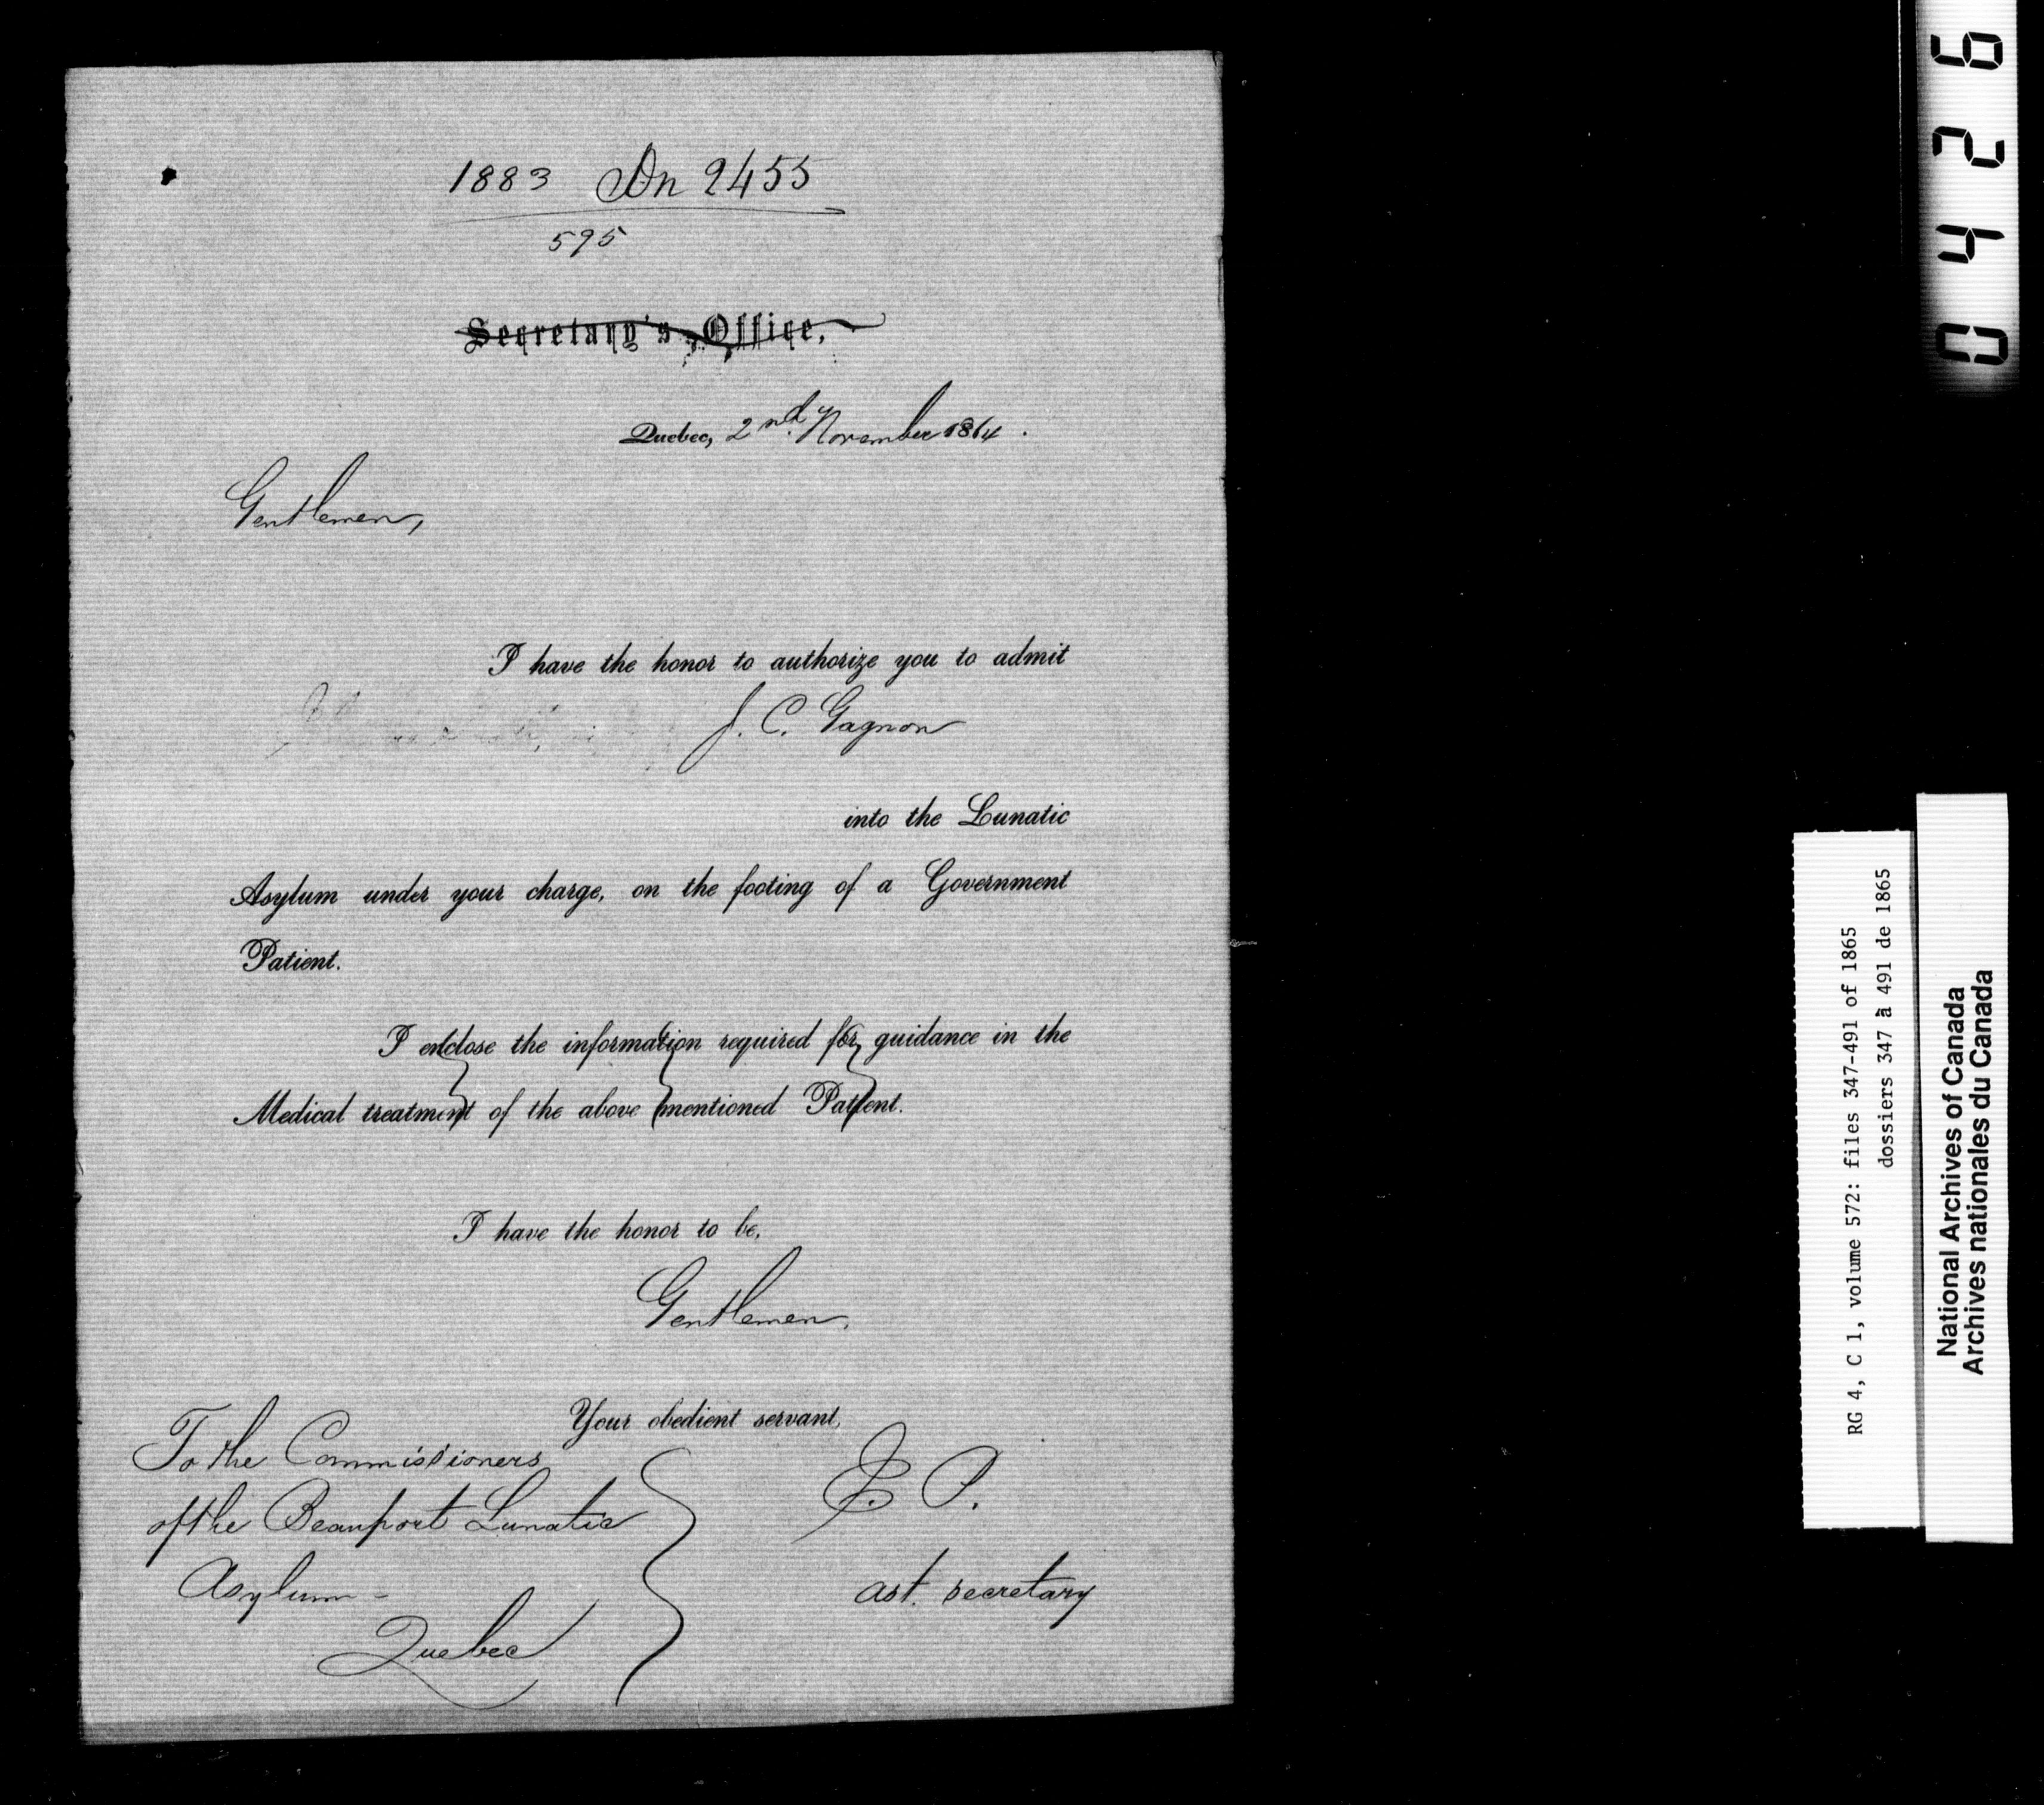 1883 On 2455
595
Secretary's Office,
Quebec, 2nd November 1864.
Gentlemen,
I have the honor to authorize you to admit
J. C. Gagnon
into the Lunatic
Asylum under your charge, on the footing of a Government
Patient.
I enclose the information required for guidance in the
Medical treatment of the above mentioned Patient.
I have the honor to be,
Gentlemen,
Your obedient servant,
To the Commissioners
of the Beauport Lunatic
Asylum -
Quebec
E. P.
Ast. Secretary
0426
RG 4, C 1, volume 572: files 347-491 of 1865
dossiers 347 à 491 de 1865
National Archives of Canada
Archives nationales du Canada